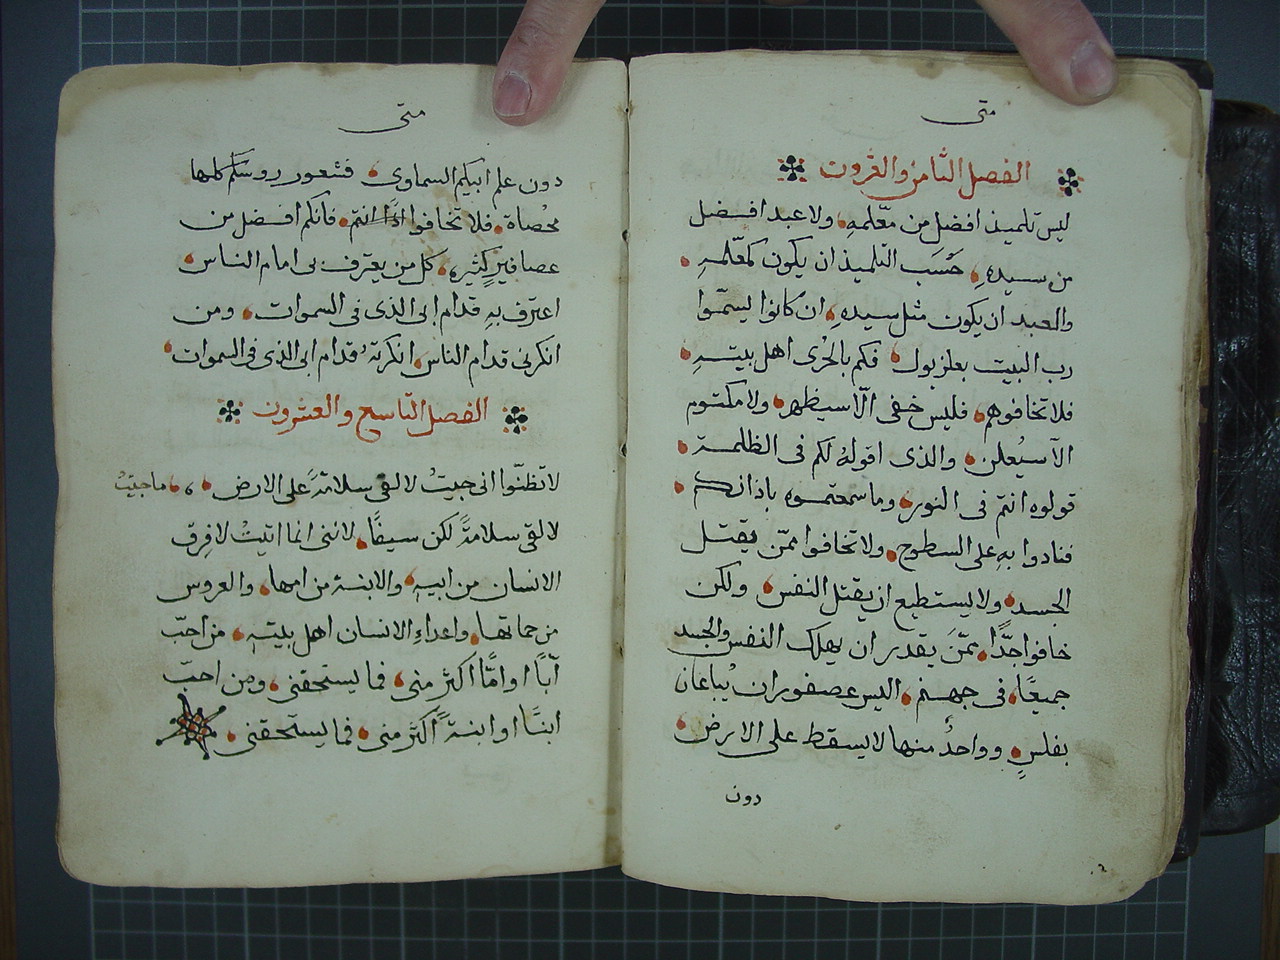 متى
الفصل الثامن والقرون
ليس تلميذ افضل من معّلمهِ، ولا عبد افضل
من سيدهِ، حَسَب التلميذ ان يكون كمعّلمهِ،
والعبد ان يكون مثل سيدهِ، ان كانوا يسمّوا
رب البيت بعلزبول، فكم بالحُرى اهل بيتهِ،
فلا تخافوهم، فليس خفى الّا سيظهر، ولا مكتوم
الّا سيُعلن، والذى اقولهُ لكم فى الظلمة،
قولوه انتم فى النور، وما سمعتموه باذانكم،
فنادوا بهِ على السطوح، ولا تخافوا ممّن يقتل
الجسد، ولا يستطيع ان يقتل النفس، ولكن
خافوا جدًّا، ممّن يقدر ان يهلك النفس والجسد
جميعًا، فى جهنم، اليس عصفوران يُباعان
بفلسٍ، وواحدٌ منها لا يسقط على الارض،
دون
متى
دون علم ابيكم السماوى، فشعور روسكم كلها
محُصاة، فلا تخافوا اذًا انتم، فانكم افضل من
عصافيرٍ كثيره، كل من يعترف بى امام الناس،
اعترف بهِ قدام ابى الذى فى السموات، ومن
انكرنى قدام الناس، انكرتهُ قدام ابى الذى فى السموات،
الفصل التاسع والعشرون
لا تظنّوا انى جيتُ لالقى سلامةً على الارض، ما جيتُ
لالقى سلامةً لكن سيفًا، لاننى انما اتيتُ لافرق
الانسان من ابيهِ، والابنة من امها، والعروس
من حماتها، واعداءِ الانسان اهل بيتهِ، من احبّ
آبًا او امًّا اكثر منى، فما يستحقنى، ومن احبّ
ابنًا او ابنةً اكثر منى، فما يستحقنى،